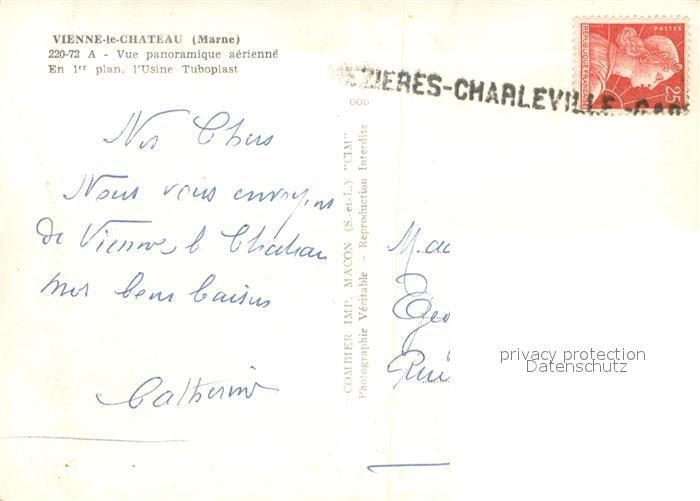 VIENNE-le-CHATEAU (Marne)
220-72 A - Vue panoramique aérienne
En 1er plan, l'Usine Tuboplast
POSTES
REPUBLIQUE FRANÇAISE
25
EZIERES-CHARLEVILLE-GARE
Nos Chers
Nous vous envoyons
de Vienne le Chateau
nos bons baisers
Catherine
COMBIER IMP. MACON (S.-et-L.) "CIM"
Photographie Véritable - Reproduction Interdite
privacy protection
Datenschutz